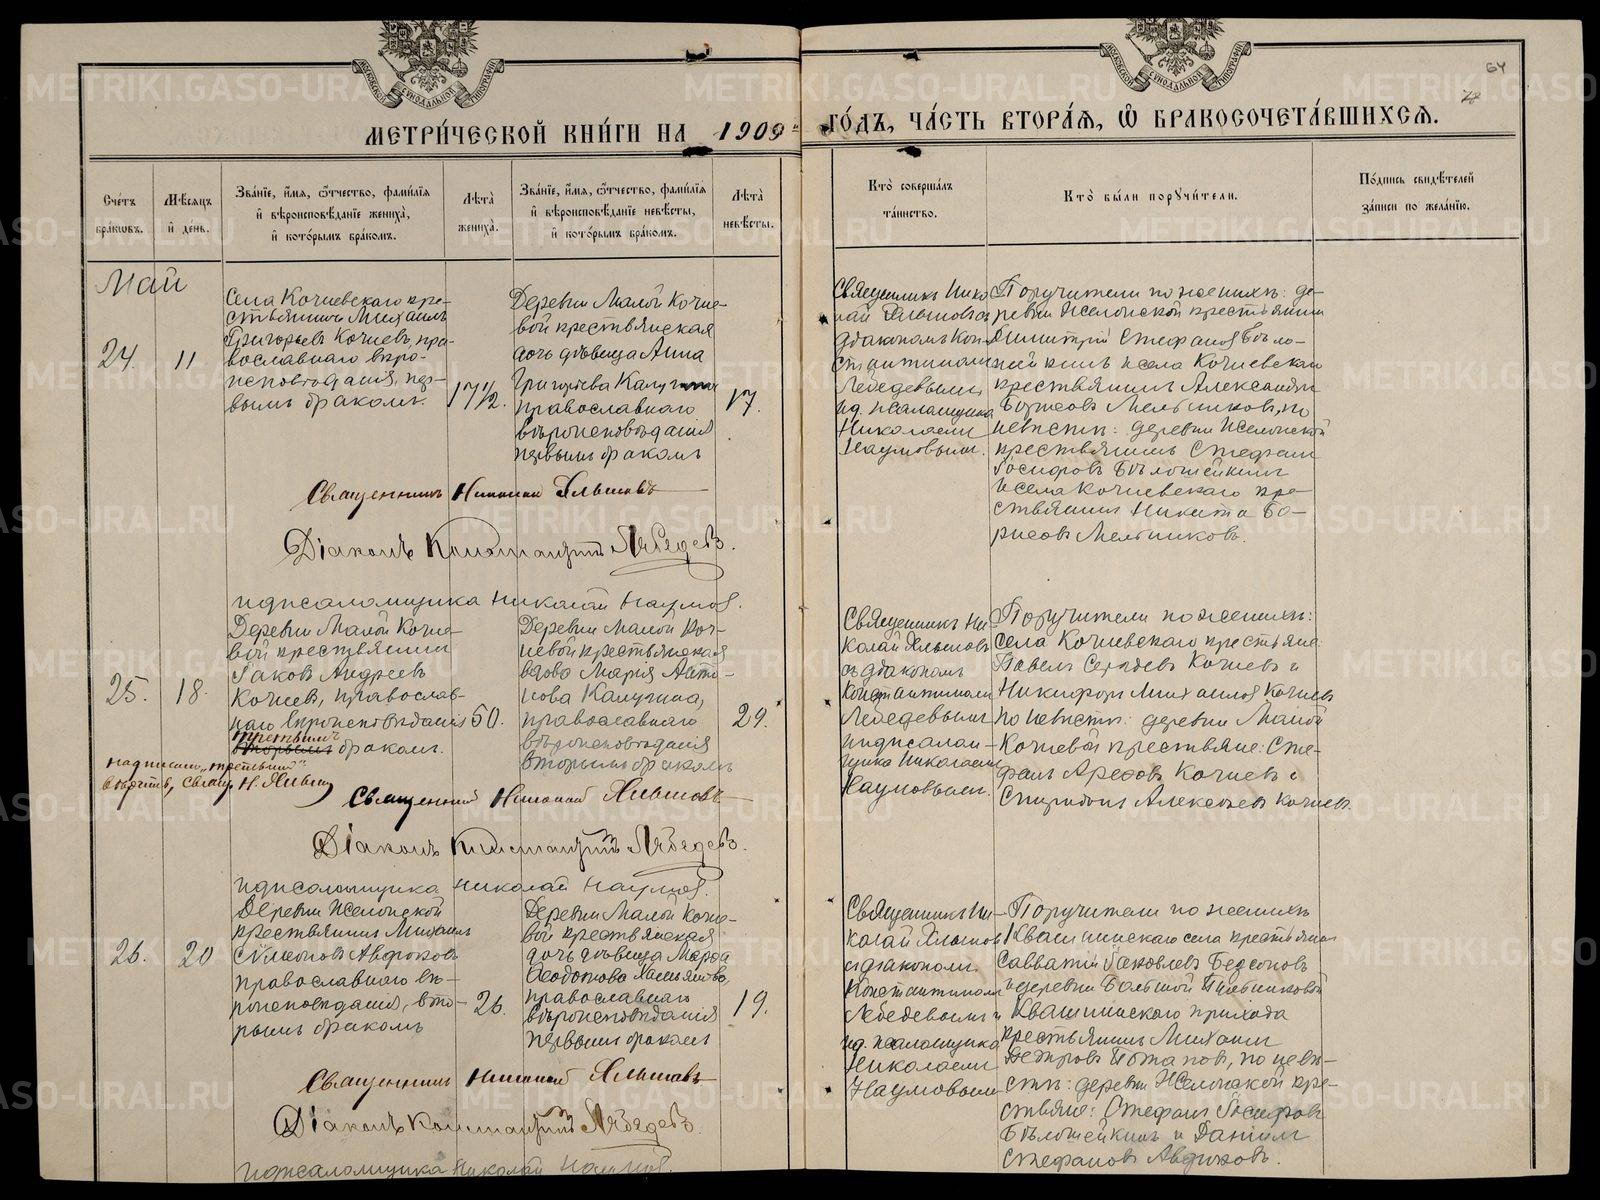 64
МЕТРИ́ЧЕСКОЙ КНИ́ГИ НА 1909 ГО́ДЪ, ЧА́СТЬ ВТОРА́Я, Ѽ БРАКОСОЧЕТА́ВШИХСЯ.
Сче́тъ бра́ковъ.
Мѣ́сяцъ и҆ де́нь.
Зва́нїе, и҆́мя, ѻ҆́тчество, фами́лїя и҆ вѣроисповѣ́данїе жениха̀, и҆ кото́рымъ бра́комъ.
Лѣта̀ жениха̀.
Зва́нїе, и҆́мя, ѻ҆́тчество, фами́лїя и҆ вѣроисповѣ́данїе невѣ́сты, и҆ кото́рымъ бра́комъ.
Лѣта̀ невѣ́сты.
Кто̀ соверша́лъ та́инство.
Кто̀ бы́ли порꙋчи́тели.
По́дпись свидѣ́телей за́писи по жела́нїю.
Май
24.
11
Села Кочневскаго кре-
стьянинъ Михаилъ
Григорьевъ Кочневъ, пра-
вославнаго вѣро-
исповѣданія, пер-
вымъ бракомъ.
17 1/2.
Деревни Малой Кочне-
вой крестьянская
дочь дѣвица Анна
Григорьева Калугина
православнаго
вѣроисповѣданія
первымъ бракомъ
17.
Священникъ Нико
лай Яльшовъ
діакономъ Кон-
стантиномъ
Лебедевымъ,
ид. псаломщика
Николаемъ
Наумовымъ.
Поручители по женихѣ: де-
ревни Желонской крестьянинъ
Димитрій Стефановъ Бѣло-
шейкинъ и села Кочневскаго
крестьянинъ Александръ
Борисовъ Мельниковъ, по
невѣстѣ: деревни Желонской
крестьянинъ Стефанъ
Іосифовъ Бѣлошейкинъ
и села Кочневскаго кре-
стьянинъ Никита Бо-
рисовъ Мельниковъ.
Священникъ Николай Яльшовъ
Діаконъ Константинъ Лебедевъ.
ид псаломщика Николай Наумов.
25.
18.
Деревни Малой Кочне-
вой крестьянинъ
Іаковъ Андреевъ
Кочневъ, православ-
наго вѣроисповѣданія
третьимъ
вторымъ бракомъ.
50.
Деревни Малой Коч-
невой крестьянская
вдова Марія Анто-
нова Калугина,
православнаго
вѣроисповѣданія
вторымъ бракомъ
29.
Священникъ Ни-
колай Яльшовъ
съ діакономъ
Константиномъ
Лебедевымъ
ид псалом-
щика Николаемъ
Наумовымъ.
Поручители по женихѣ:
села Кочневскаго крестьяне
Павелъ Сергѣевъ Кочневъ и
Никифоръ Михаиловъ Кочневъ
по невѣстѣ: деревни Малой
Кочневой крестьяне: Сте-
фанъ Кочневъ и
Спиридонъ Алексѣевъ Кочневъ.
надписано „третьимъ"
вѣрить, Свящ. Н. Яльшов
Священникъ Николай Яльшовъ
Діаконъ Константинъ Лебедевъ.
ид псаломщика Николай Наумов.
26.
20
Деревни Желонской
крестьянинъ Михаилъ
Сѵмеоновъ Авдюковъ
православнаго вѣ-
роисповѣданія, вто-
рымъ бракомъ
26.
Деревни Малой Кочне-
вой крестьянская
дочь дѣвица Марѳа
Ѳеодотова
православнаго
вѣроисповѣданія
первымъ бракомъ
19.
Священникъ Ни-
колай Яльшовъ
съ діакономъ
Константиномъ
Лебедевымъ и
ид. псаломщика
Николаемъ
Наумовымъ
Поручители по женихѣ
Квашнинскаго села крестьянинъ
Савватій Іаковлевъ Бедсоновъ
и деревни Большой Пульниковой
Квашнинскаго прихода
крестьянинъ Михаилъ
Петровъ Потапов, по невѣ-
стѣ: деревни Желонской кре-
стьяне: Стефанъ Іосифовъ
Бѣлошейкинъ и Даніилъ
Стефановъ Авдюковъ.
Священникъ Николай Яльшовъ
Діаконъ Константинъ Лебедевъ.
ид псаломщика Николай Наумов.
METRIKI.GASO-URAL.RU